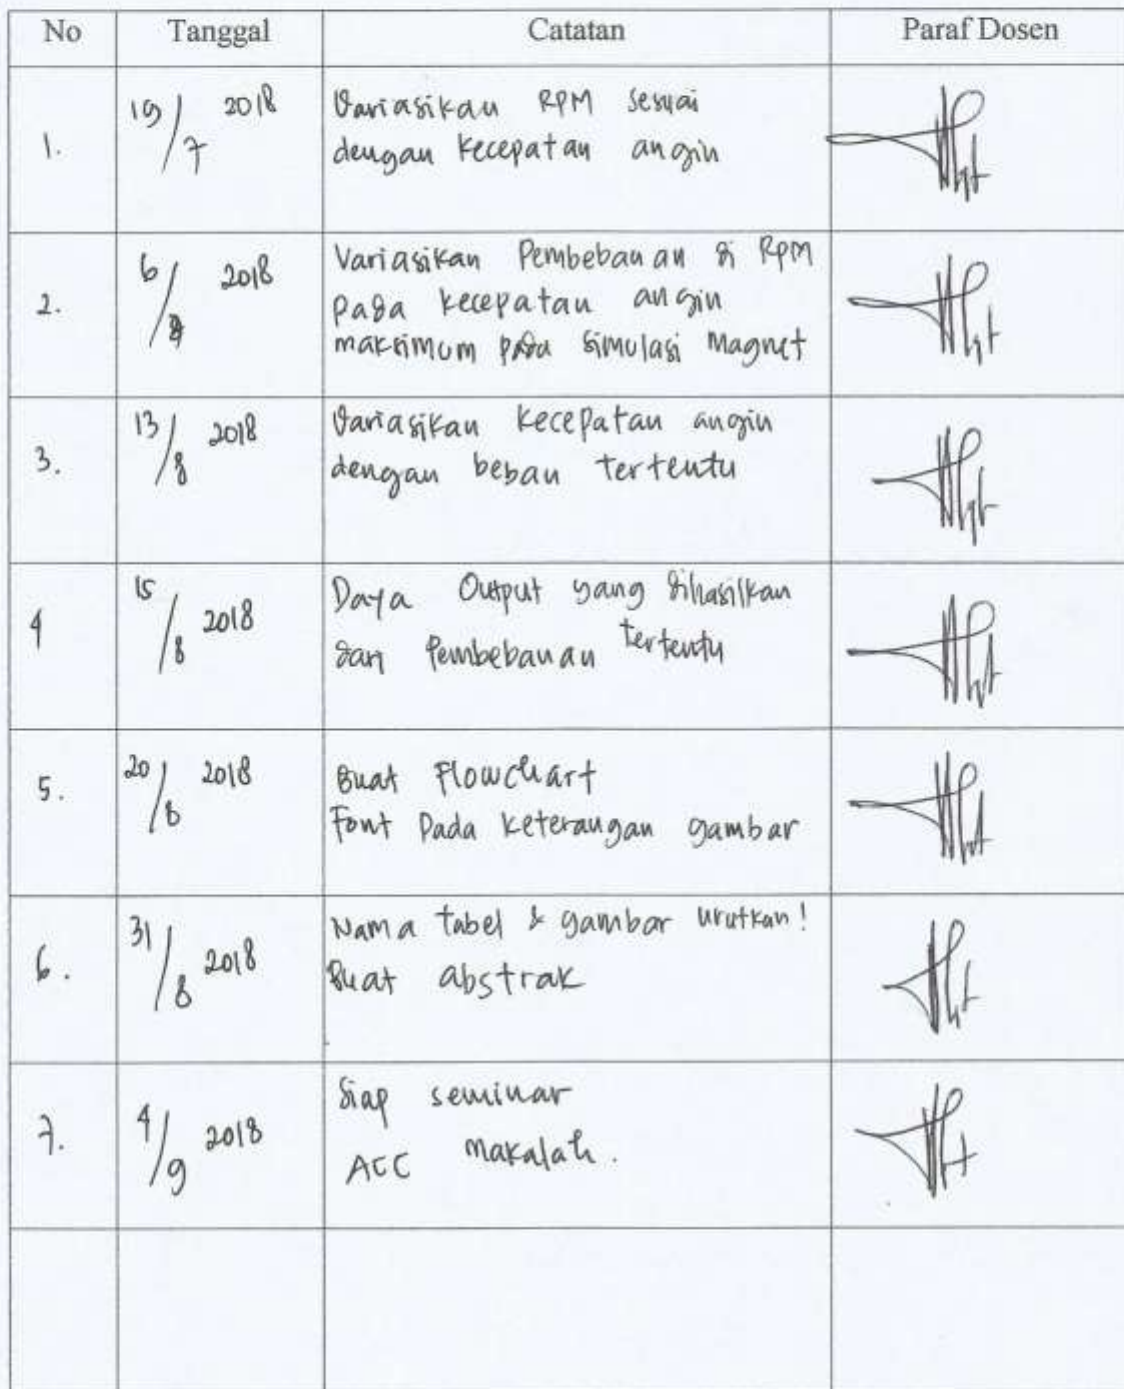 No Tanggal Catatan Paraf Dosen
1. 19/7 2018 Variasikan RPM sesuai
dengan kecepatan angin
2. 6/8 2018 Variasikan Pembebanan di RPM
pada kecepatan angin
maksimum pada simulasi Magnet
3. 13/8 2018 Variasikan kecepatan angin
dengan beban tertentu
4 15/8 2018 Daya Output yang dihasilkan
dari Pembebanan tertentu
5. 20/8 2018 Buat Flowchart
Font Pada keterangan gambar
6. 31/8 2018 Nama tabel & gambar urutkan!
Buat abstrak
7. 4/9 2018 Siap seminar
ACC makalah.